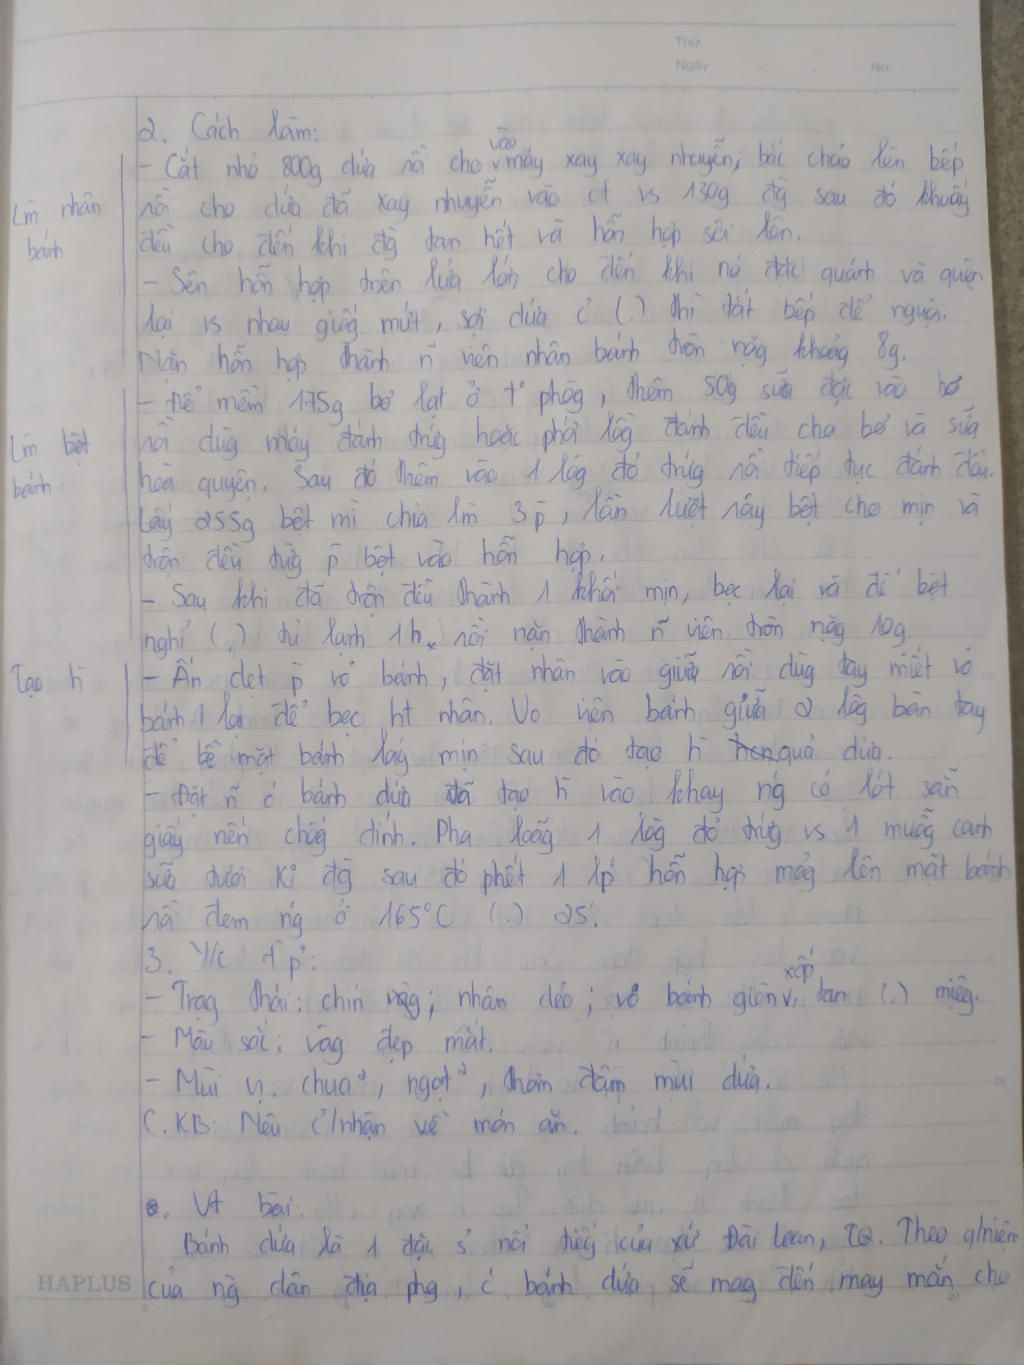 Thứ
Ngày
No.
2. Cách làm:
vào
- Cắt nhỏ 800g dứa rồi cho v máy xay xay nhuyễn; bắc chảo lên bếp
Lm̀ nhân
rồi cho dứa đã xay nhuyễn vào cf vs 130g đg̀ sau đó khuấy
bánh
đều cho đến khi đg̀ tan hết và hỗn hợp sôi lên.
- Sên hỗn hợp trên lửa lớn cho đến khi nó đặc quánh và quện
lại vs nhau giốg mứt, sợi dứa ć (.) thì tắt bếp để nguội.
Nặn hỗn hợp thành ñ viên nhân bánh tròn nặg khoảg 8g.
- Để mềm 175g bơ lạt ở t° phòg, thêm 50g sữa đặc vào bơ
Lm̀ bột
rồi dùg máy đánh trứg hoặc phới lồg đánh đều cho bơ và sữa
bánh
hòa quyện. Sau đó thêm vào 1 lòg đỏ trứg rồi tiếp tục đánh đều.
Lấy 255g bột mì chia lm̀ 3 p̄, lần lượt rây bột cho mịn và
trộn đều từg p̄ bột vào hỗn hợp.
- Sau khi đã trộn đều thành 1 khối mịn, bọc lại và để bột
nghỉ (.) tủ lạnh 1h, rồi nặn thành ñ viên tròn nặg 10g.
Tạo h̀
- Ấn dẹt p̄ vỏ bánh, đặt nhân vào giữa rồi dùg tay miết vỏ
bánh lại để bọc ht nhân. Vo viên bánh giữa 2 lòg bàn tay
để bề mặt bánh lág mịn sau đó tạo h̀ quả dứa.
- Đặt ñ ć bánh dứa đã tạo h̀ vào khay ńg có lót sẵn
giấy nến chốg dính. Pha loãg 1 lòg đỏ trứg vs 1 muỗg canh
sữa tươi K° đg̀ sau đó phết 1 lṕ̛ hỗn hợp mỏg lên mặt bánh
rồi đem ńg ở 165°C (.) 25'.
3. Y/c t̀ p̉:
xốp
- Trạg thái: chín vàg; nhân dẻo; vỏ bánh giòn v, tan (.) miệg.
- Màu sắc: vàg đẹp mắt.
- Mùi vị: chua², ngọt², thơm đậm mùi dứa.
C. KB: Nêu c̉/nhận về món ăn.
Vt bài.
Bánh dứa là 1 đặc s̉ nổi tiếg của xứ Đài Loan, TQ. Theo q/niệm
của ng̀ dân địa phg, ć bánh dứa sẽ mag đến may mắn cho
HAPLUS